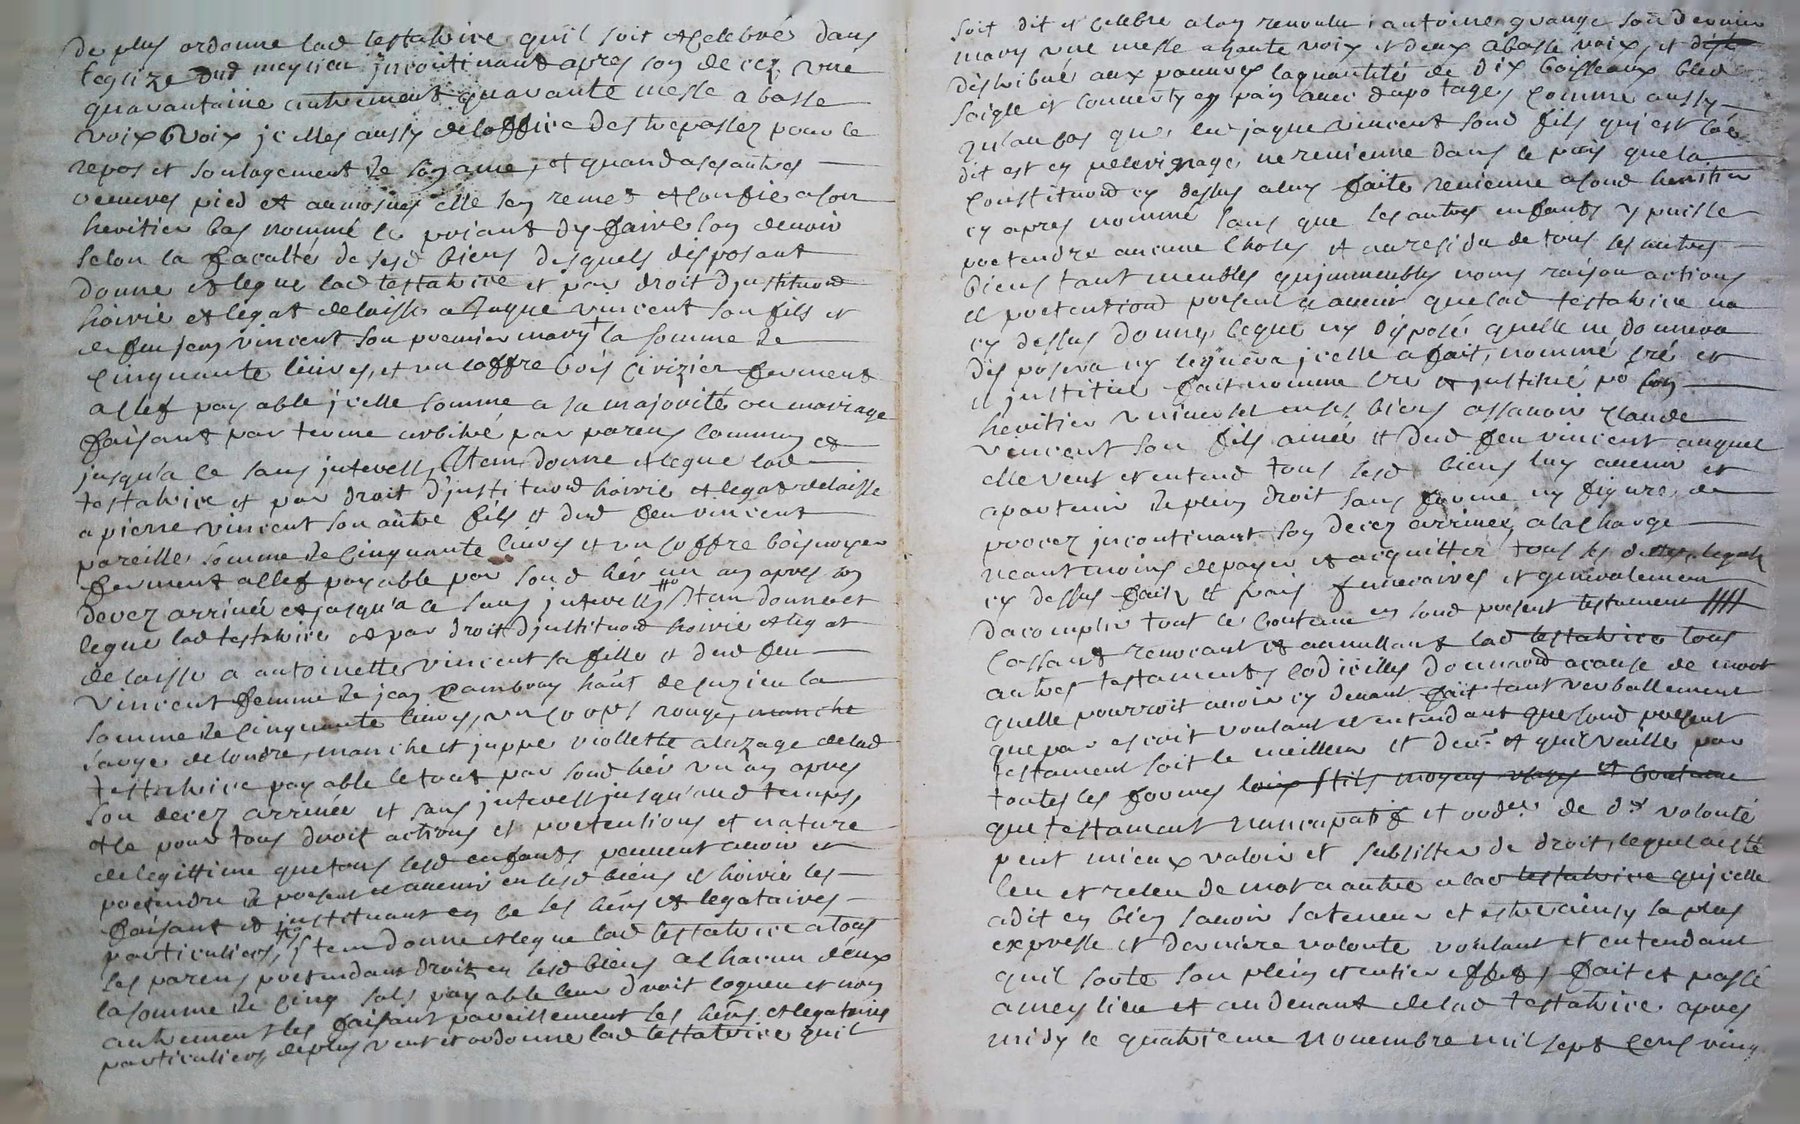 De plus ordonne lad testatrice quil soit et celebré dans
leglize dud meylieu jncontinant apres son decez, une
quarantaine autrement quarante messe a basse
voix voix jcelles aussy de loffice des trepassez pour le
repos et soulagement de son ame, et quand a ses autres
oeuvres pied et aumosnes elle sen remet et confie a son
heritier bas nommé le priant dy faire son devoir
selon la faculté de sesd biens desquels disposant
donne et legue lad testatrice et par droit djnstituōn
hoirie et legat delaisse a Jaque vincent son fils et
de feu jean vincent son premier mary la somme de
cinquante livres, et un coffre bois cirizier ferment
a clef payable jcelle somme a sa majorité ou mariage
faisant par terme arbitré par parens communs et
jusqu'a ce sans jnterest, Item donne et legue lad
testatrice et par droit d'jnstituōn hoirie et legat delaisse
a pierre vincent son autre fils et dud feu vincent
pareille somme de cinquante livres et un coffre bois noyer
ferment a clef payable par sond hér un an apres son
decez arrivée et jusqu'a ce sans jnterests Item donne et
legue lad testatrice et par droit d'jnstituōn hoirie et legat
delaisse a antoinette vincent sa fille et dud feu
vincent femme de jean haut de la
somme de cinquante livres, un corps rouge, manche
sarge de londre, manche et juppe viollette a luzage de lad
testatrice payable le tout par sond hér un an apres
son decez arrivée et sans jnterest jusqu'aud temps,
et ce pour tous droit actions et pretentions et nature
de legittime que tous lesd enfants peuvent avoir et
pretendre de present et avenir en lesd biens et hoirie les
faisant et jnstituant en ce ses hérs et legataires
particuliers, Item donne et legue lad testatrice a tous
les parens pretendans droit en lesd biens a chacun deux
la somme de cinq sols payable leur droit logeu et non
autrement les faisant pareillement ses hérs et legataires
particuliers de plus veut et ordonne lad testatrice quil
soit dit et celebre a lay antoine son dernier
mary une messe a haute voix et deux a basse voix, et dist
distribué aux pauvres la quantité de dix boisseaux bled
seigle et converty en pain avec du potage, comme aussy
qu'au cas que led jaque vincent sond fils qui est coe
dit est en pelerignage ne revienne dans le pays que la
constituōn cy dessus a luy faite revienne a sond heritier
cy apres nommé sans que les autres enfants y puisse
pretendre aucune chose, et au residu de tous les autres
biens tant meubles qu'jmmeubles noms raison actions
et pretentions present et avenir que lad testatrice na
cy dessus donné, legué ny disposé quelle ne donnera
disposera ny leguera jcelle a fait, nommé cré et
jnstitué fait nomme cre et jnstitué po son
heritier universel en ses biens assavoir Claude
vincent son fils ainée et dud feu vincent auquel
elle veut et entend tous lesd biens luy avenir et
apartenir de plein droit sans forme ny figure de
procez jncontinant son decez arrivée, a la charge
neantmoins de payer et acquitter tous les dettes, legats
cy dessus faits et frais funeraires et generalement
dacomplir tout le contenu en sond present testament
cassant revocant et annullant lad testatrice tous
autres testaments codicilles donnaōn a cause de mort
quelle pourroit avoir cy devant fait tant verballement
que par escrit voulant et entendant que sond present
testament soit le meilleur et der. et quil vaille par
toutes les formes loix stils moyens usages et coutume
que testament nuncupatif et ord.re de d.re volonté
peut mieux valoir et subsister de droit, lequel a esté
leu et releu de mot a autre a lad testatrice qu'jcelle
a dit en bien savoir sa teneur et estre ainsy sa plus
expresse et derniere volonte voulant et entendant
quil sorte son plein et entier effet, fait et passé
a meylieu et au devant de lad testatrice apres
midy le quatrieme novembre mil sept cens ving